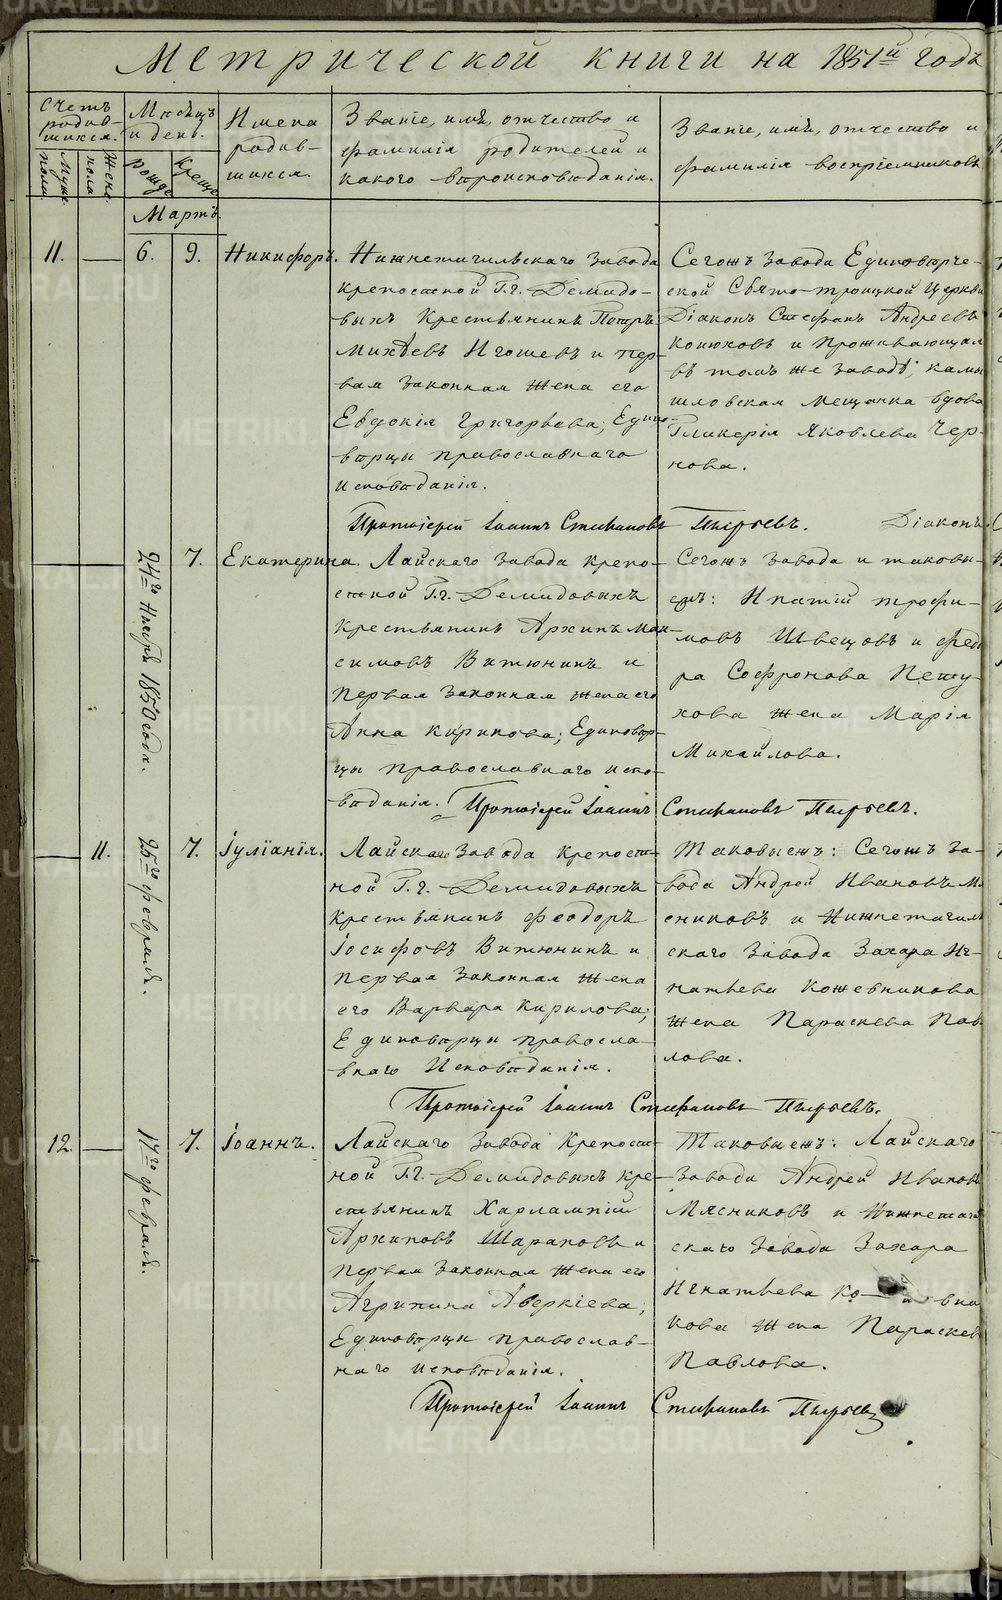 Метрической книги на 1851й годъ
Счетъ родив-шихся.
Муже. пола.
Жене. пола
Мѣсяцъ и день.
рожде
креще
Имена родив-шихся.
Званіе, имя, отчество и
фамилія родителей и
какого вѣроисповѣданія.
Званіе, имя, отчество и
фамилія воспріемниковъ
Мартъ.
11. — 6. 9. Никифоръ.
Нижнетагильскаго завода
крепостной Г.г. Демидо-
выхъ Крестьянинъ Петръ
Михѣевъ Игошевъ и пер-
вая законная жена его
Евдокія Григорьева; Едино-
вѣрцы православнаго
исповѣданія.
Сегожъ завода Единовѣрче-
ской Свято-троицкой Церкви
Діаконъ Стефанъ Андреевъ
Конюховъ и проживающая
въ томъ же заводѣ, камы
шловская мещанка вдова
Гликерія Яковлева Чер-
нова.
Протоіерей Іоаннъ Стефановъ Пырьевъ. Діаконъ
24го Ноября 1850 года. 7. Екатерина.
Лайскаго завода крепо-
стной Г.г. Демидовыхъ
крестьянинъ Архипъ Мак-
симовъ Витюнинъ и
первая законная жена его
Анна Кирикова; Единовѣр-
цы православнаго испо-
вѣданія.
Сегожъ завода и таковы-
ежъ: Ипатій трофи-
мовъ Швецовъ и Федо
ра Софронова Пету-
хова жена Марія
Михайлова.
Протоіерей Іоаннъ Стефановъ Пырьевъ.
— 11. 25го февраля. 7. Іуліанія.
Лайскаго завода крепост-
ной Г.г. Демидовыхъ
крестьянинъ Феодоръ
Іосифовъ Витюнинъ и
первая законная жена
его Варвара Кирилова;
Единовѣрцы правосла-
внаго Исповѣданія.
Таковыежъ: Сегожъ за-
вода Андрей Ивановъ Мя
сниковъ и Нижнетагиль
скаго завода Захара Иг-
натьева Кожевникова
жена Параскева Пав-
лова.
Протоіерей Іоаннъ Стефановъ Пырьевъ.
12. — 17го февраля. 7. Іоаннъ.
Лайскаго завода Крепост-
ной Г.г. Демидовыхъ кре-
стьянинъ Харлампій
Архиповъ Шараповъ и
первая законная жена его
Агрипина Аверкіева;
Единовѣрцы православ-
наго исповѣданія.
Таковыежъ: Лайскаго
завода Андрей Ивановъ
Мясниковъ и Нижнетаги
скаго завода Захара
Игнатьева Ко вни
кова жена Параскев
Павлова.
Протоіерей Іоаннъ Стефановъ Пырьевъ
METRIKI.GASO-URAL.RU